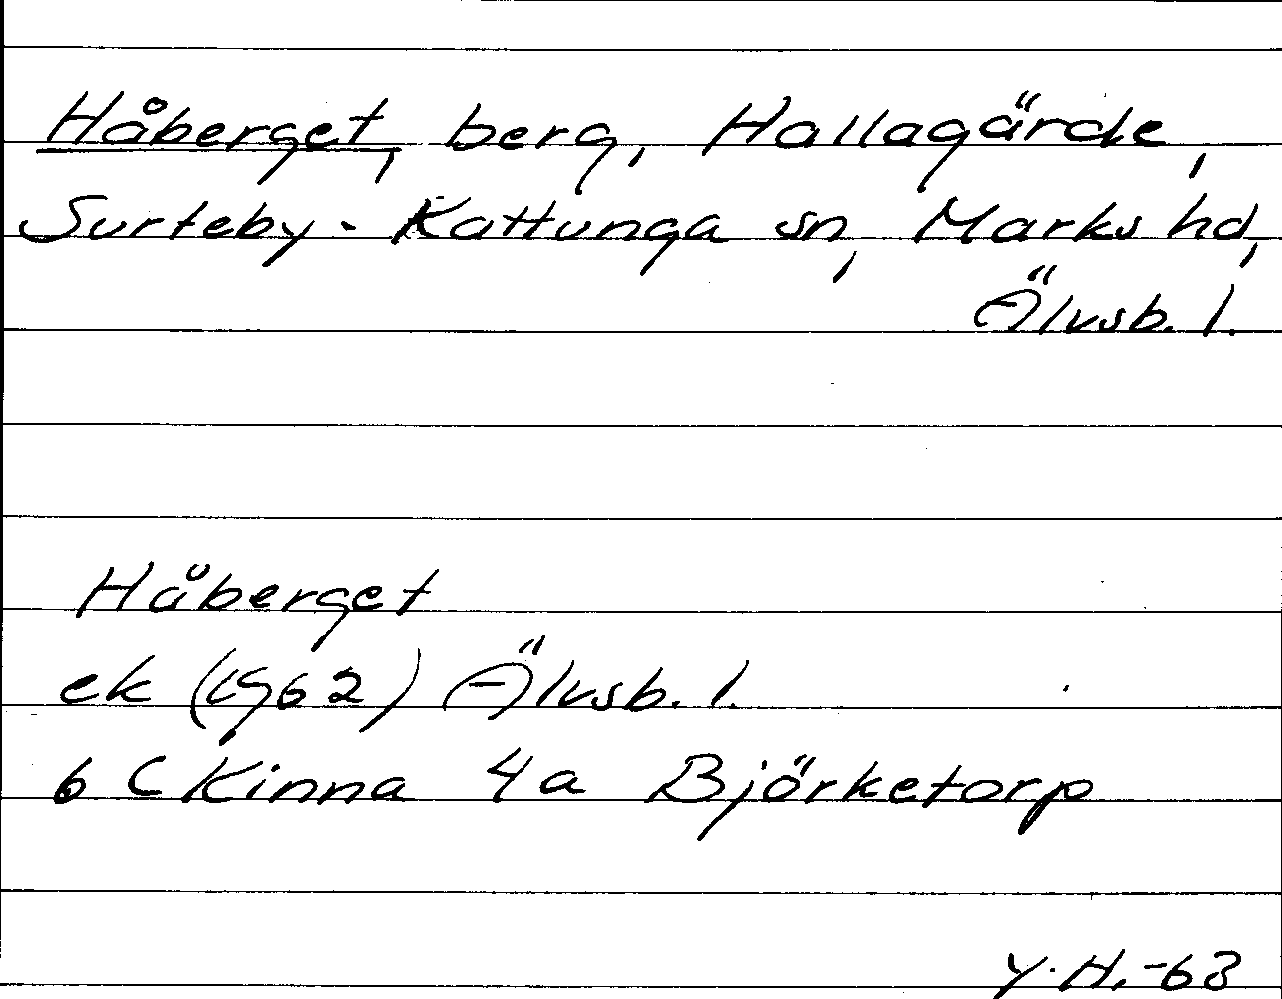 Håberget, berg, Hallagärde,
Surteby-Kattunga sn, Marks hd,
Älvsb. l.
Håberget
ek (1962) Älvsb. l.
6 C Kinna 4a Björketorp
Y.H. -63